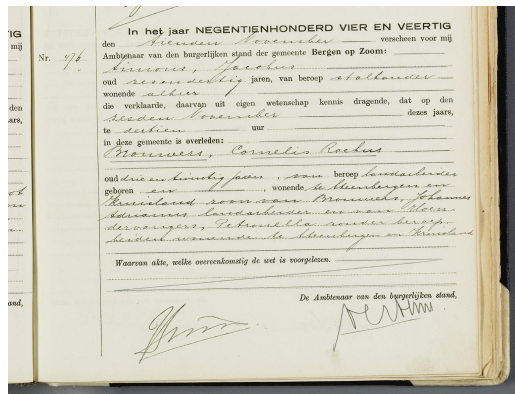 TIG
mij
den
aars,
tand,
Nr. 976.
In het jaar NEGENTIENHONDERD VIER EN VEERTIG
den November verscheen voor mij
Ambtenaar van den burgerlijken stand der gemeente Bergen op Zoom:
Simons, Jacobus
oud zesendertig jaren, van beroep stalhouder
wonende alhier
die verklaarde, daarvan uit eigen wetenschap kennis dragende, dat op den
zesden November dezes jaars,
te dertien uur
in deze gemeente is overleden:
Brouwers, Cornelis Rochus
oud drie en twintig jaren, van beroep landarbeider
geboren en , wonende te Steenbergen en
Kruisland zoon van Brouwers, Johannes
Adrianus landarbeider en van
Petronella zonder beroep
beiden wonende te Steenbergen en Kruisland
Waarvan akte, welke overeenkomstig de wet is voorgelezen.
De Ambtenaar van den burgerlijken stand,